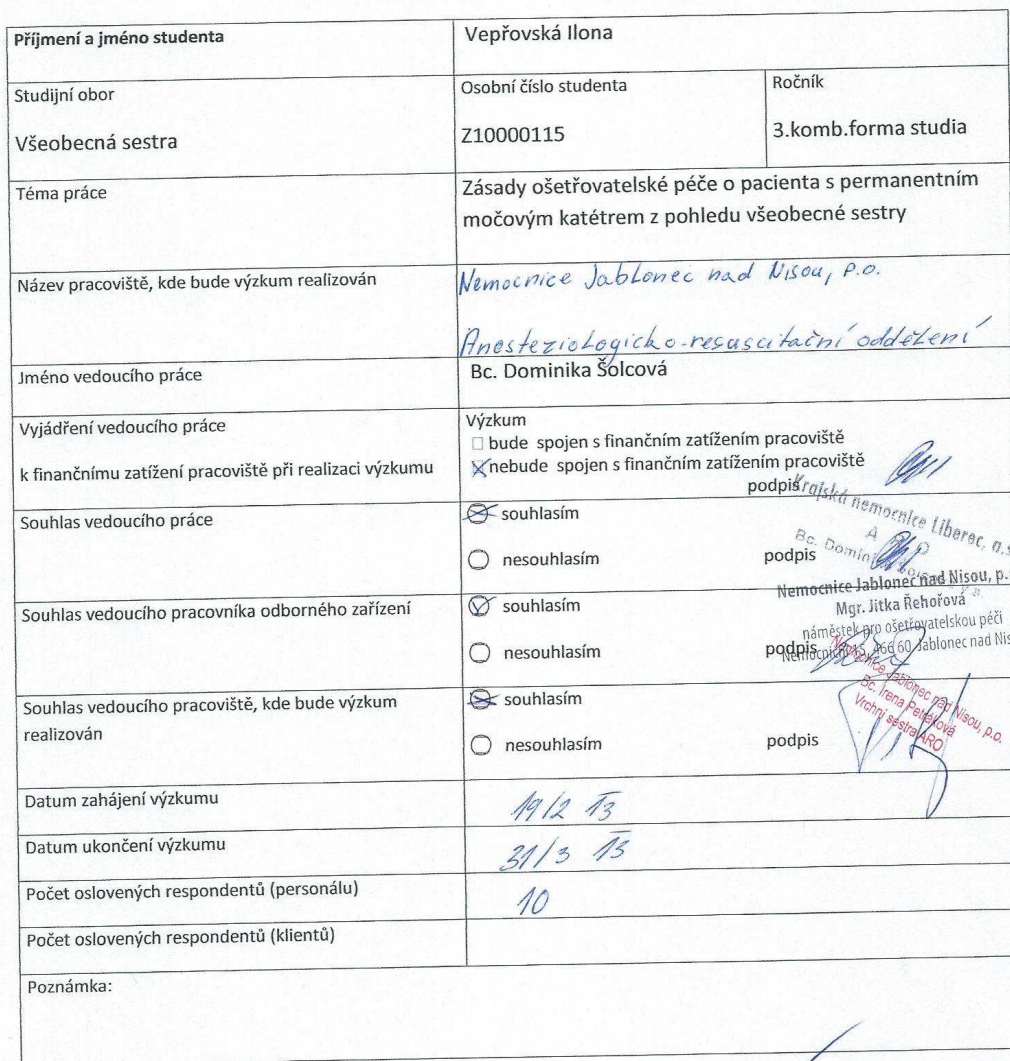 Příjmení a jméno studenta
Vepřovská Ilona
Studijní obor
Všeobecná sestra
Osobní číslo studenta
Z10000115
Ročník
3.komb.forma studia
Téma práce
Zásady ošetřovatelské péče o pacienta s permanentním
močovým katétrem z pohledu všeobecné sestry
Název pracoviště, kde bude výzkum realizován
Nemocnice Jablonec nad Nisou, p.o.
Anesteziologicko-resuscitační oddělení
Jméno vedoucího práce
Bc. Dominika Šolcová
Vyjádření vedoucího práce
k finančnímu zatížení pracoviště při realizaci výzkumu
Výzkum
bude spojen s finančním zatížením pracoviště
nebude spojen s finančním zatížením pracoviště
podpis
Krajská nemocnice Liberec, a.s.
Souhlas vedoucího práce
souhlasím
nesouhlasím
podpis
A R O
Bc. Dominika
Souhlas vedoucího pracovníka odborného zařízení
souhlasím
nesouhlasím
podpis
Nemocnice Jablonec nad Nisou, p.
Mgr. Jitka Řehořová
náměstek pro ošetřovatelskou péči
Nemocniční 15, 466 60 Jablonec nad Nis
Souhlas vedoucího pracoviště, kde bude výzkum
realizován
souhlasím
nesouhlasím
podpis
Nemocnice Jablonec nad Nisou, p.o.
Bc. Irena Petráková
Vrchní sestra ARO
Datum zahájení výzkumu
19/2 13
Datum ukončení výzkumu
31/3 13
Počet oslovených respondentů (personálu)
10
Počet oslovených respondentů (klientů)
Poznámka: